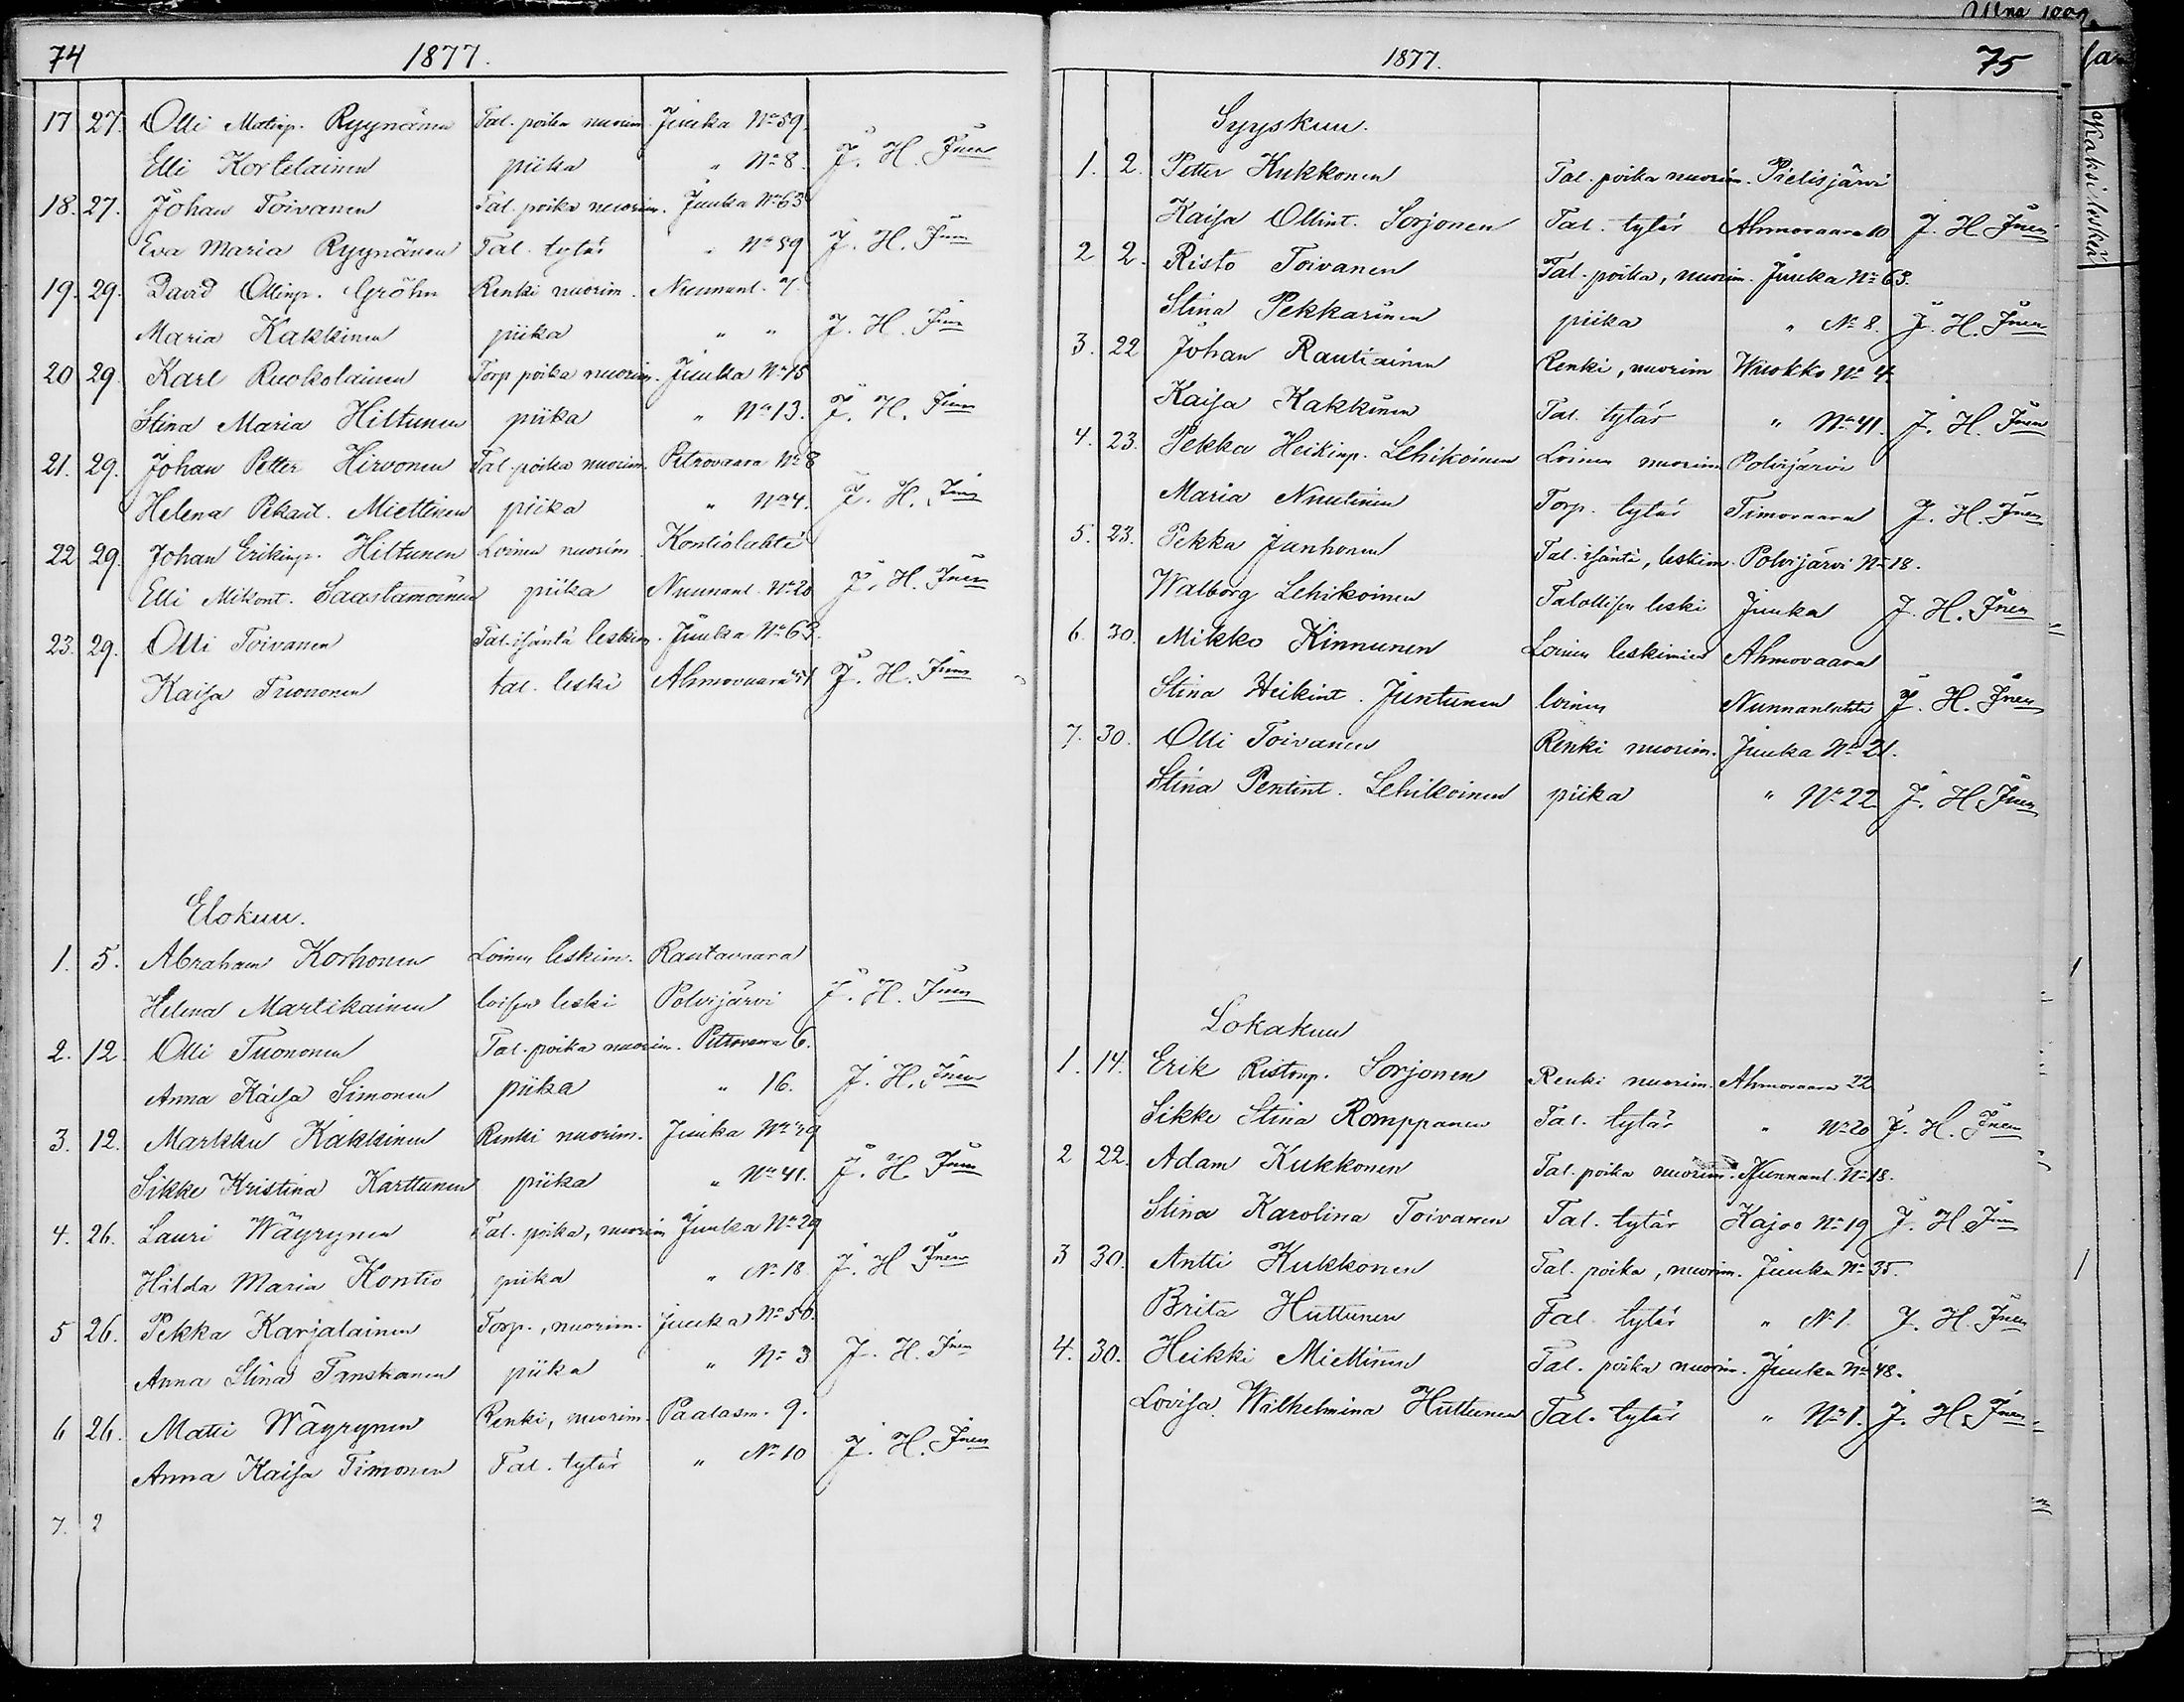 74
1877.
17 27. Olli Matinp. Ryynänen Tal. poika nuorim. Juuka No 59.
Elli Kortelainen piika " No 8. J. H. Inen
18. 27. Johan Toivanen Tal. poika nuorim. Juuka No 63
Eva Maria Ryynänen Tal. tytär " No 59 J. H. Inen
19. 29. David Ollinp. Gröhn Renki nuorim. Nunnanl. 7.
Maria Kakkinen piika " " J. H. Inen
20 29. Karl Ruokolainen Torp poika nuorim. Juuka No 15
Stina Maria Hiltunen piika " No 13. J. H. Inen
21. 29. Johan Petter Hirvonen Tal. poika nuorim. Petrovaara No 8
Helena Pekant. Miettinen piika " No 4. J. H. Inen
22 29. Johan Erikinp. Hiltunen Loinen nuorim. Kontiolahti
Elli Mikont. Saastamoinen piika Nunnanl. No 20 J. H. Inen
23. 29. Olli Toivanen Tal. isäntä leskim. Juuka No 63.
Kaisa Tuononen tal. leski Ahmovaara 51 J. H. Inen
Elokuu.
1. 5. Abraham Korhonen Loinen leskim. Rautavaara
Helena Martikainen loisen leski Polvijärvi J. H. Inen
2. 12. Olli Tuononen Tal. poika nuorim. Petrovaara 6.
Anna Kaisa Simonen piika " 16. J. H. Inen
3. 12. Markku Kakkinen Renki nuorim. Juuka No 29
Sikke Kristina Karttunen piika " No 41. J. H. Inen
4. 26. Lauri Wäyrynen Tal. poika, nuorim Juuka No 29
Hilda Maria Kontio piika " No 18 J. H Inen
5 26. Pekka Karjalainen Torp., nuorim. Juuka No 50.
Anna Stina Tanskanen piika " No 3 J. H. Inen
6 26. Matti Wäyrynen Renki, nuorim. Paalasm. 9.
Anna Kaisa Timonen Tal. tytär " No 10 J. H. Inen
7. 2
1877.
75
Syyskuu.
1. 2. Petter Kukkonen Tal. poika nuorim. Pielisjärvi
Kaisa Ollint. Sorjonen Tal. tytär Ahmovaara 10 J. H. Inen
2 2. Risto Toivanen Tal. poika, nuorim. Juuka No 63.
Stina Pekkarinen piika " No 8. J. H. Inen
3. 22 Johan Rautiainen Renki, nuorim Wuokko No 4.
Kaisa Kakkinen Tal. tytär " No 41. J. H. Inen
4. 23. Pekka Heikinp. Lehikoinen Loinen nuorim Polvijärvi
Maria Nuutinen Torp. tytär Timovaara J. H. Inen
5. 23. Pekka Junhonen Tal. isäntä, leskim. Polvijärvi No 18.
Walborg Lehikoinen Talollisen leski Juuka J. H. Inen
6. 30. Mikko Kinnunen Loinen leskimies Ahmovaara
Stina Heikint. Juntunen loinen Nunnanlahti J. H. Inen
7. 30. Olli Toivanen Renki nuorim. Juuka No 21.
Stina Pentint. Lehikoinen piika " No 22 J. H. Inen
Lokakuu
1. 14. Erik Ristonp. Sorjonen Renki nuorim. Ahmovaara 22
Sikke Stina Romppanen Tal. tytär " No 20 J. H. Inen
2 22. Adam Kukkonen Tal. poika nuorim. Nunnanl. No 18.
Stina Karolina Toivanen Tal. tytär Kajoo No 19 J. H Inen
3 30. Antti Kukkonen Tal. poika, nuorim. Juuka No 35.
Brita Huttunen Tal. tytär " No 1. J. H. Inen
4. 30. Heikki Miettinen Tal. poika nuorim. Juuka No 48.
Lovisa Wilhelmina Huttunen Tal. tytär " No 1. J. H. Inen
Kaksi leskeä